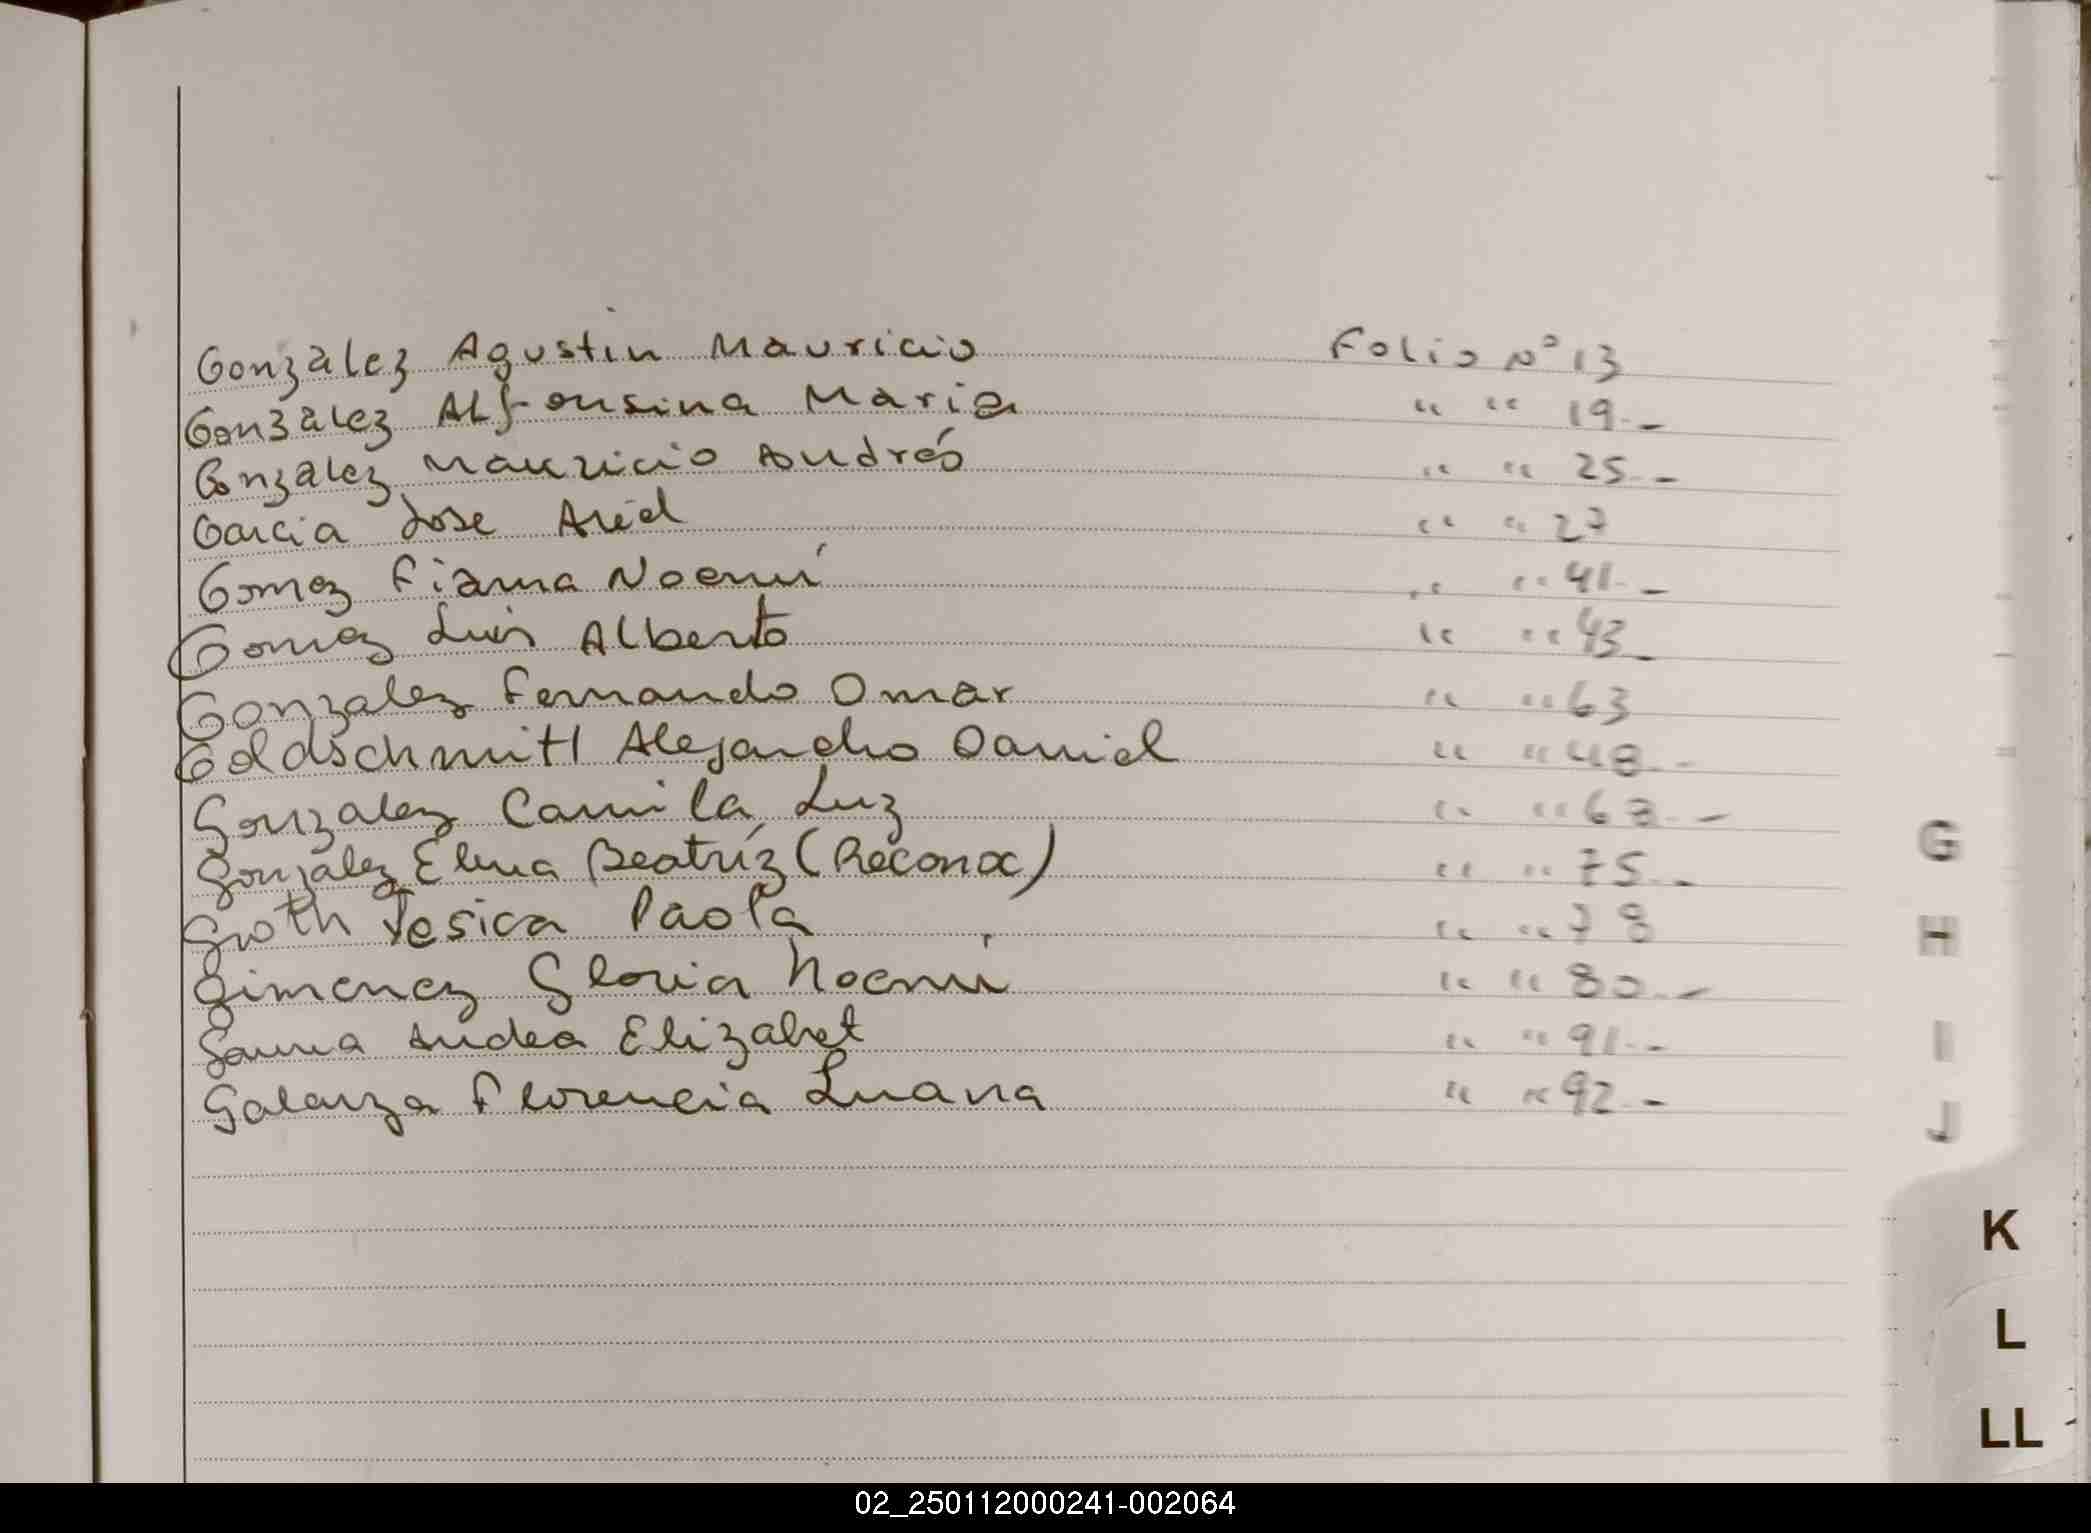 González Agustin Mauricio Folio Nº 13
González Alfonsina Maria " " 19.-
Gonzalez Mauricio Andrés " " 25.-
Garcia Jose Ariel " " 27
Gomez Fiama Noemí " " 41.-
Gomez Luis Alberto " " 43.-
Gonzalez Fernando Omar " " 63
Goldschmitl Alejandro Daniel " " 48.-
Gonzalez Camila Luz " " 68.-
Gonzalez Elena Beatríz (Reconoc) " " 75.-
Groth Jesica Paola " " 78
Gimenez Gloria Noemí " " 80.-
Andea Elizabet " " 91.-
Galarza Florencia Luana " " 92.-
G
H
I
J
K
L
LL
02_250112000241-002064